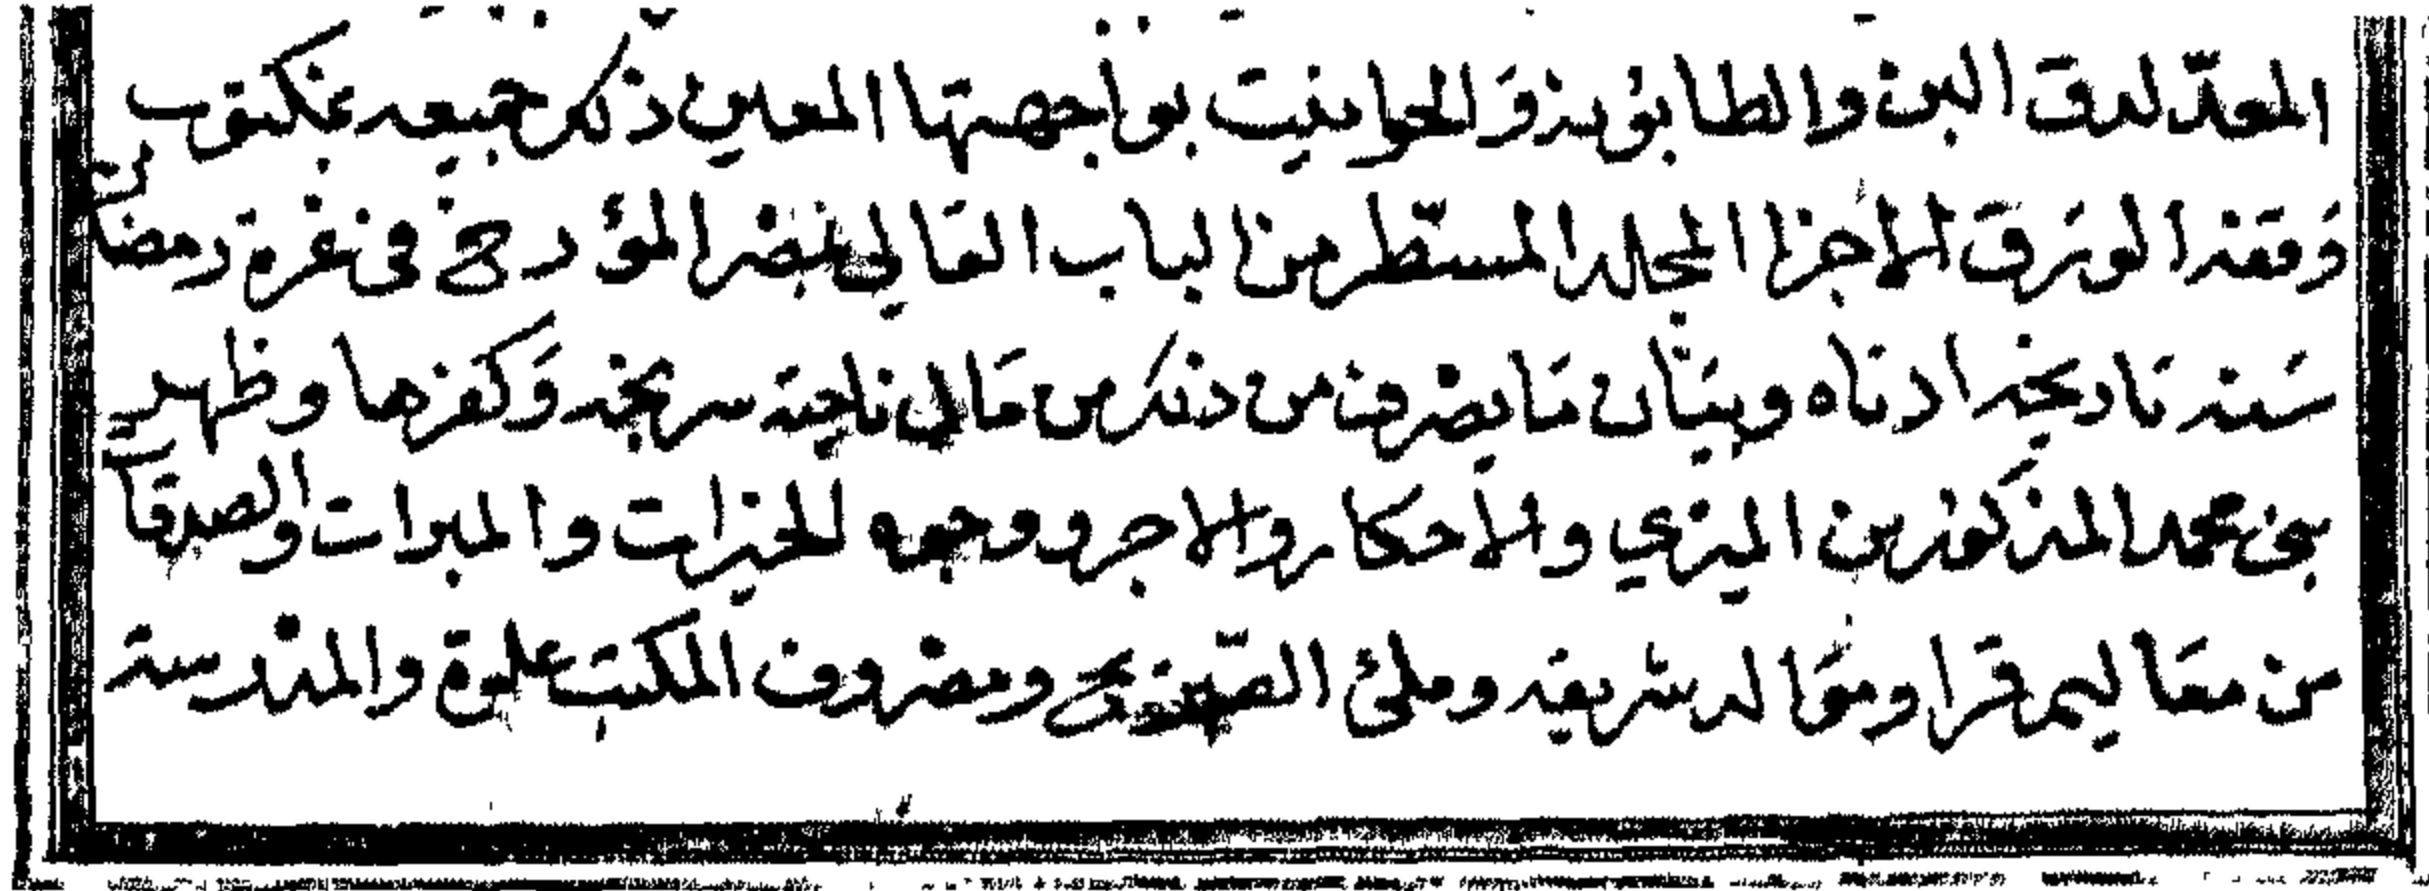 المعدّ لدق البن والطابونه وَالحوانيت بواجهتها المعين ذلك جميعه بمكتوب
وَقفه الورَق الاجزا المجلد المسطّر من الباب العَالي بمصْر المؤرخ فى غرة رمضان
سَنه تاريخه ادناه وبيَان مَا يصْرف من ذلكَ من مَال ناحية سريجه وَكفرها وظهر
بنى محمد المذكورين الميرى والاحكار والاجر ووجه الخيرات والمبرات والصدقات
من معَاليم قرا وموَالد شريفه وملئ الصّهريج ومصْروف المكتب علوة والمدرسة